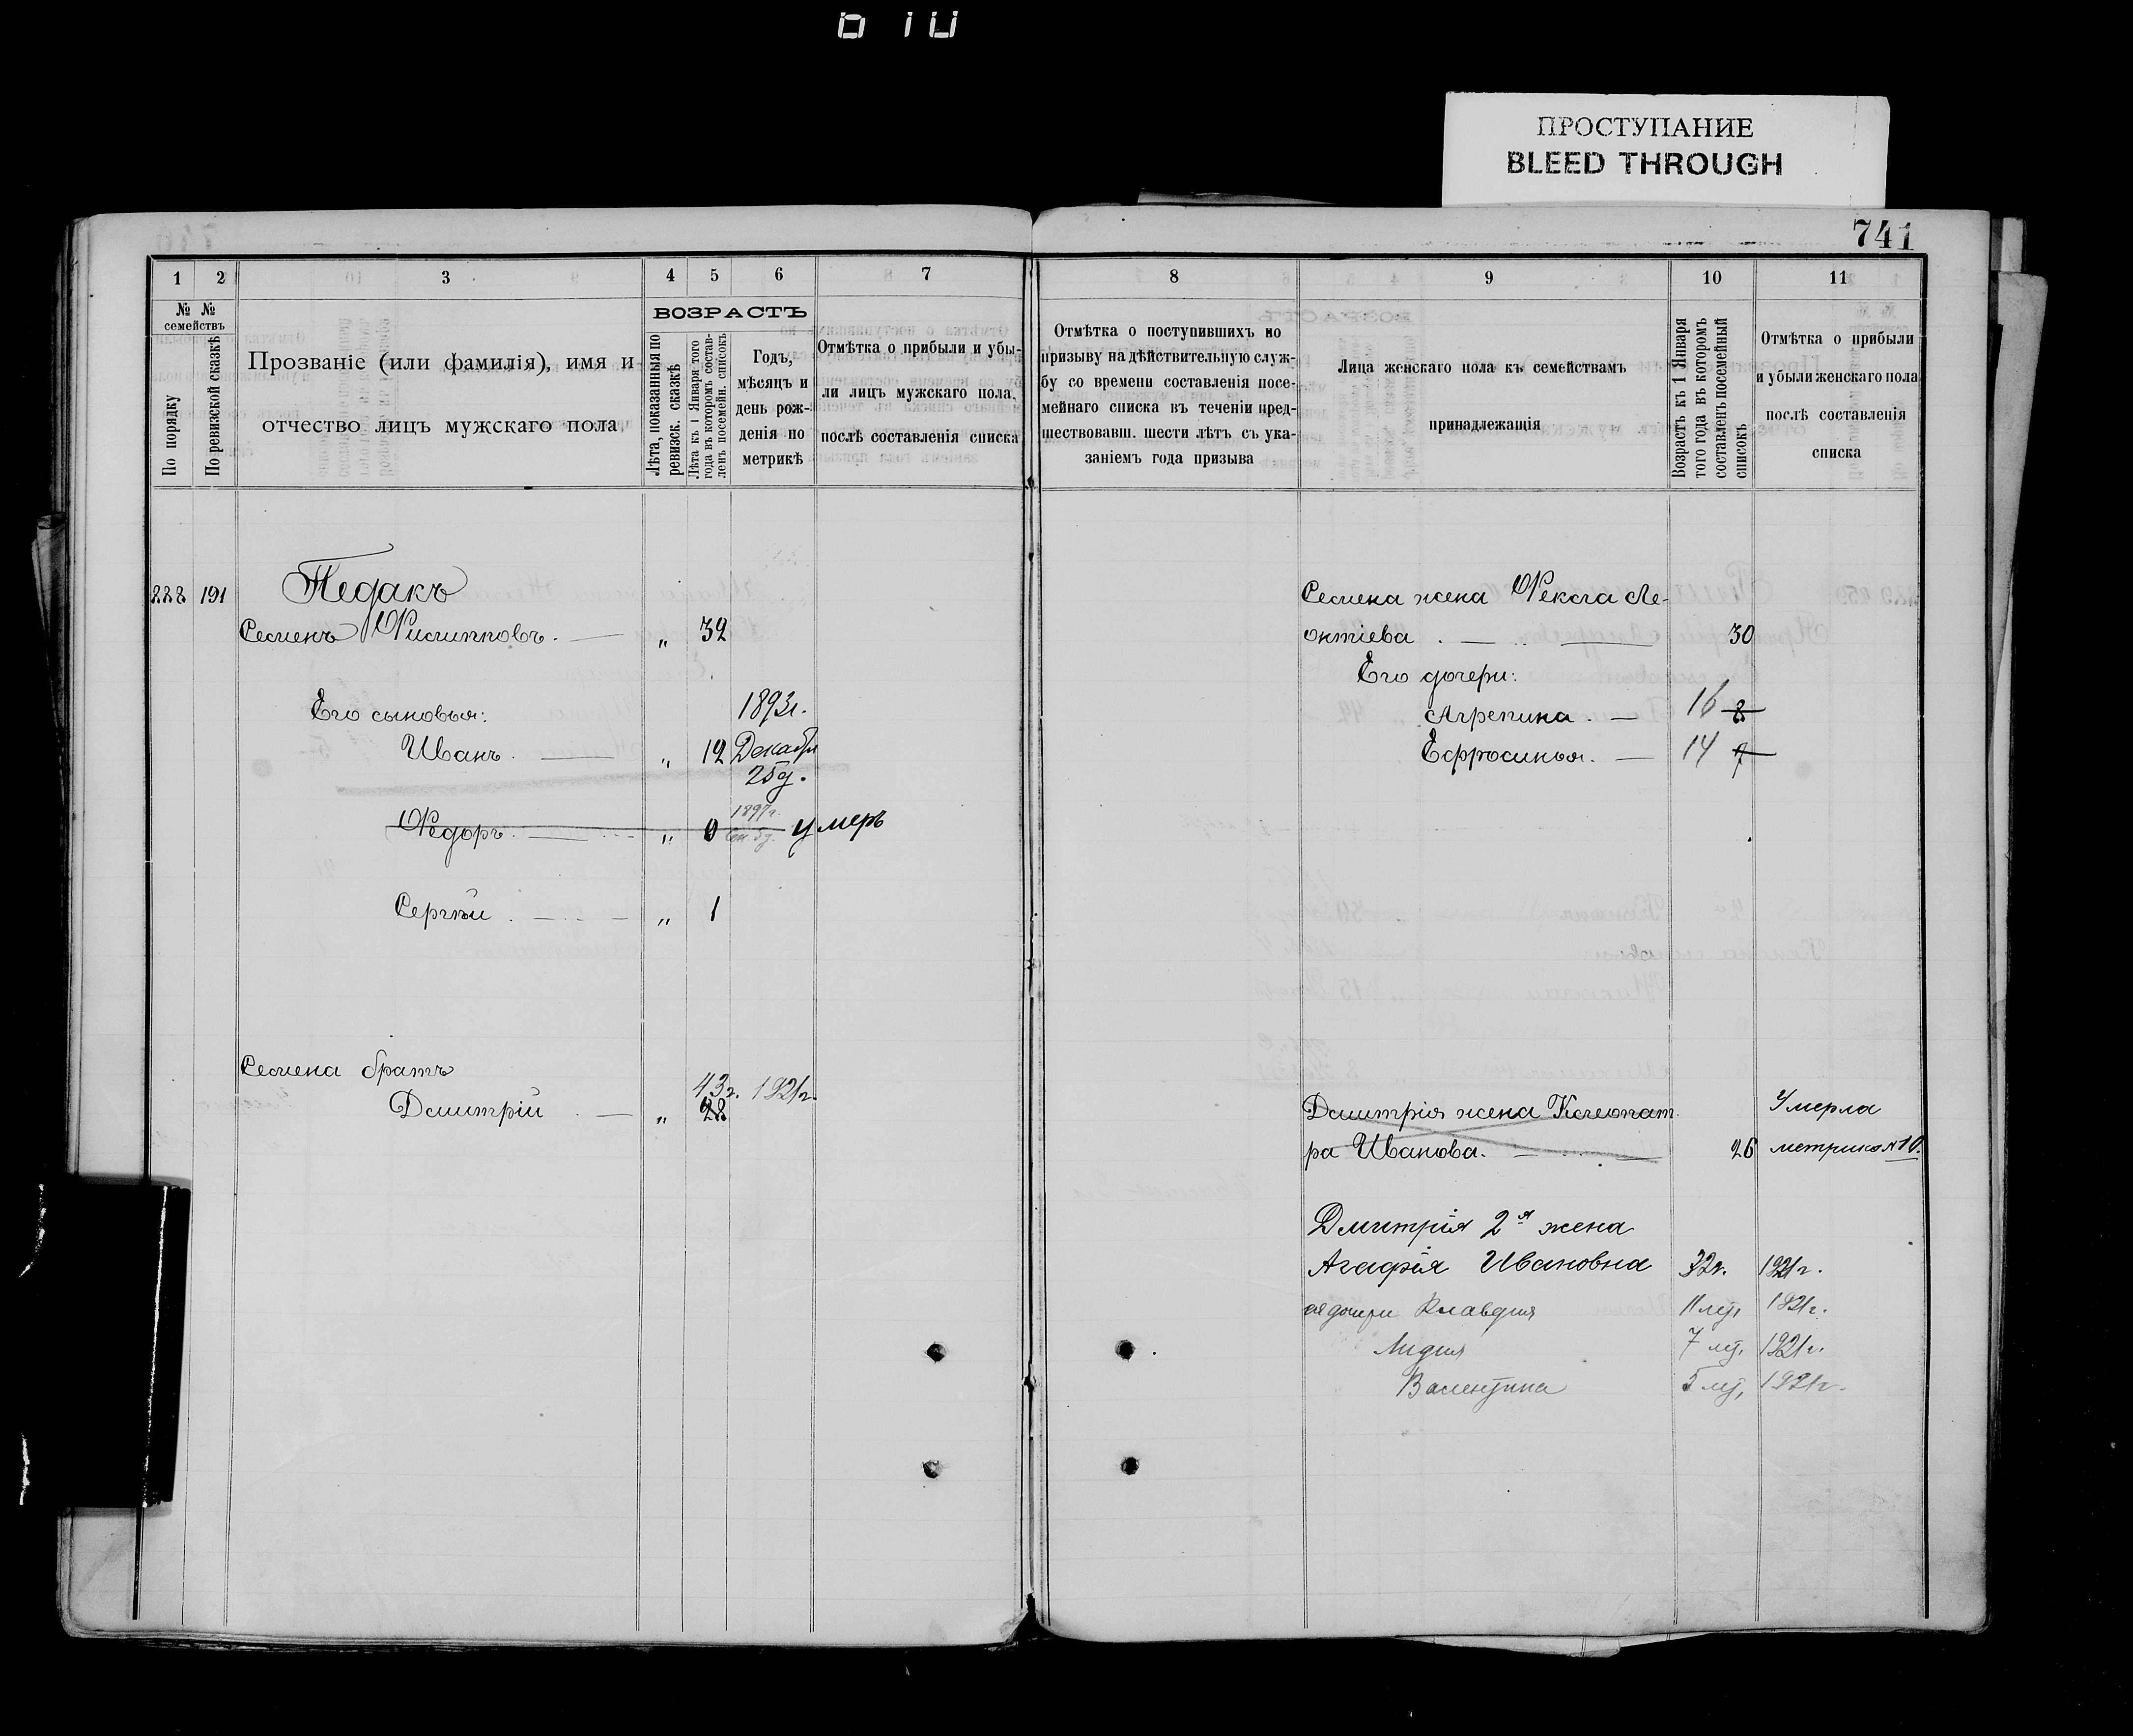 ПРОСТУПАНИЕ
BLEED THROUGH
741
1 2 3 4 5 6 7
№ № семействъ
По порядку
По ревизской сказкѣ
Прозваніе (или фамилія), имя и
отчество лицъ мужскаго пола
ВОЗРАСТЪ
Лѣта, показанныя по
ревизск. сказкѣ
Лѣта къ 1 Января того
года въ которомъ состав-
ленъ посемейн. списокъ
Годъ,
мѣсяцъ и
день рож-
денія по
метрикѣ
Отмѣтка о прибыли и убы-
ли лицъ мужскаго пола,
послѣ составленія списка
222 191 Педакъ
Семенъ Филипповъ. — „ 32
Его сыновья: 1893г.
Иванъ. — „ 12 Декабр
25д.
Федоръ. — „ 0 1897г. умеръ
Сергѣй. — „ 1
Семена братъ
43г. 1921г.
Дмитрій — „ 28
8 9 10 11
Отмѣтка о поступившихъ по
призыву на дѣйствительную служ-
бу со времени составленія посе-
мейнаго списка въ теченіи пред-
шествовавш. шести лѣтъ съ ука-
заніемъ года призыва
Лица женскаго пола къ семействамъ
принадлежащія
Возрастъ къ 1 Января
того года въ которомъ
составленъ посемейный
списокъ
Отмѣтка о прибыли
и убыли женскаго пола
послѣ составленія
списка
Семена жена Фекла Ле-
онтіева. — 30
Его дочери:
Агрепина. — 16 8
Ефросинья. — 14 7
Дмитрія жена Клеопат- Умерла
ра Иванова. — 26 метрика №10.
Дмитрія 2я жена
Агафія Ивановна 32г. 1921г.
ея дочери Клавдия 11 лет, 1921г.
Лидия 7 лет, 1921г.
Валентина 5 лет, 1921г.